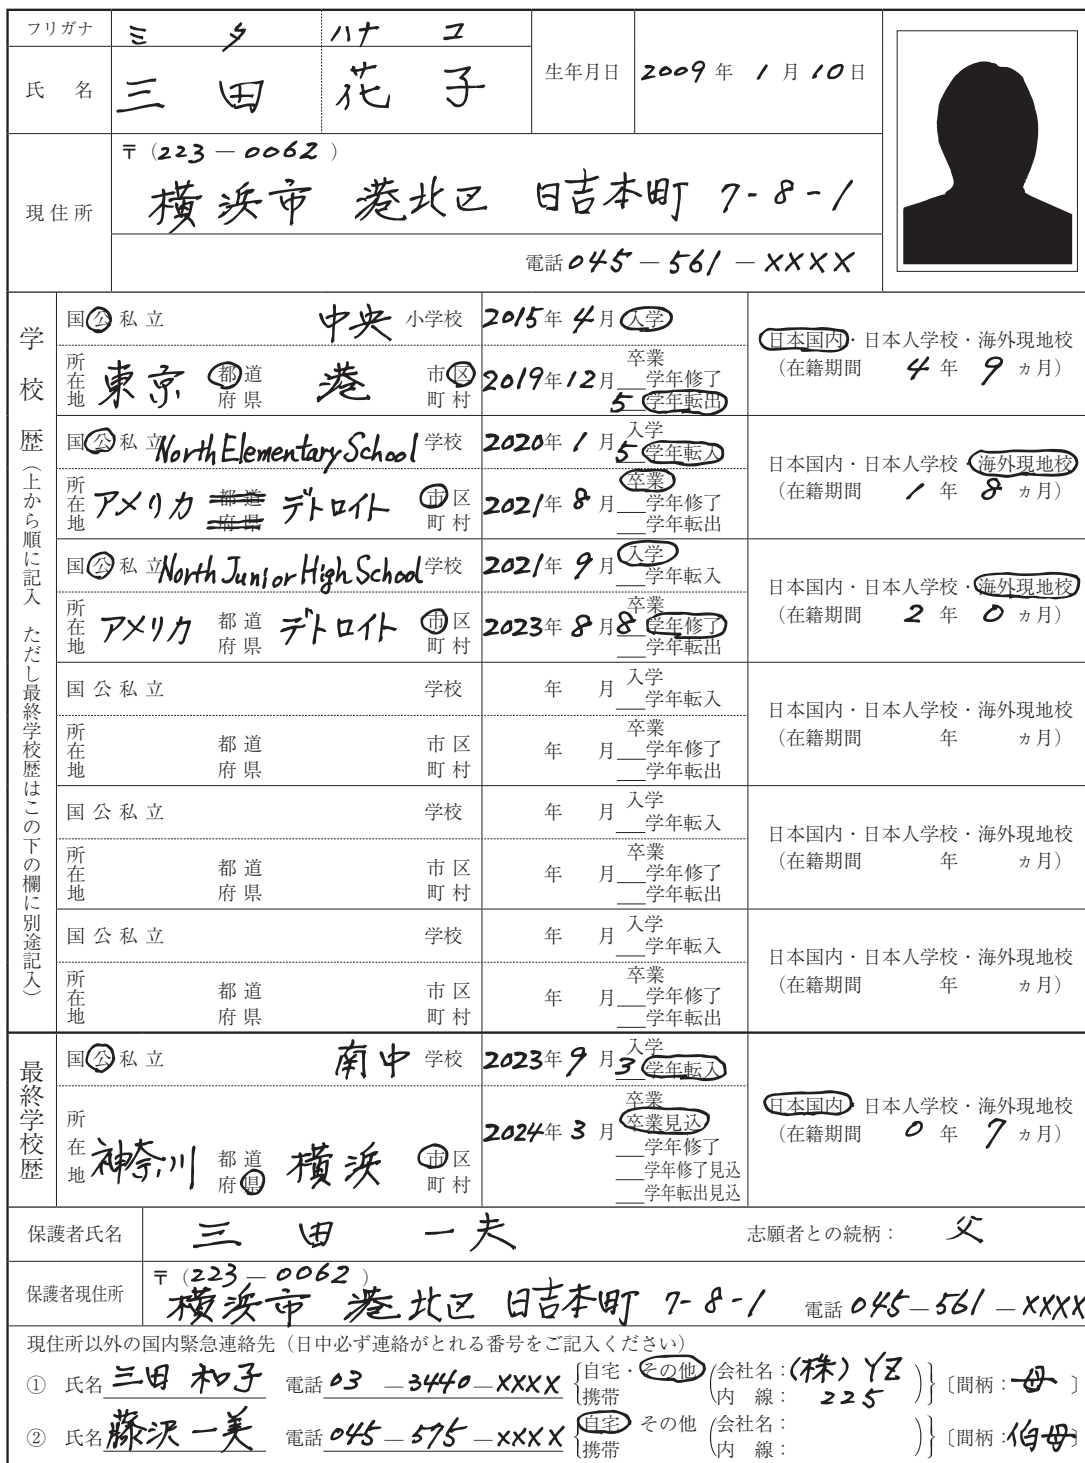 フリガナ ミタ ハナコ
氏名 三田 花子 生年月日 2009年 1月10日
現住所 〒(223―0062)
横浜市 港北区 日吉本町 7-8-1
電話 045―561―XXXX
学校歴(上から順に記入 ただし最終学校歴はこの下の欄に別途記入)
国公私立 中央 小学校 2015年 4月 入学
所在地 東京 都道府県 港 市区町村 2019年12月 卒業 __学年修了 5学年転出
日本国内・日本人学校・海外現地校
(在籍期間 4年 9ヵ月)
国公私立 North Elementary School 学校 2020年 1月 入学 5学年転入
所在地 アメリカ 都道府県 デトロイト 市区町村 2021年 8月 卒業 __学年修了 __学年転出
日本国内・日本人学校・海外現地校
(在籍期間 1年 8ヵ月)
国公私立 North Junior High School 学校 2021年 9月 入学 __学年転入
所在地 アメリカ 都道府県 デトロイト 市区町村 2023年 8月 卒業 8学年修了 __学年転出
日本国内・日本人学校・海外現地校
(在籍期間 2年 0ヵ月)
国公私立 学校 年 月 入学 __学年転入
所在地 都道府県 市区町村 年 月 卒業 __学年修了 __学年転出
日本国内・日本人学校・海外現地校
(在籍期間 年 ヵ月)
国公私立 学校 年 月 入学 __学年転入
所在地 都道府県 市区町村 年 月 卒業 __学年修了 __学年転出
日本国内・日本人学校・海外現地校
(在籍期間 年 ヵ月)
国公私立 学校 年 月 入学 __学年転入
所在地 都道府県 市区町村 年 月 卒業 __学年修了 __学年転出
日本国内・日本人学校・海外現地校
(在籍期間 年 ヵ月)
最終学校歴
国公私立 南中 学校 2023年 9月 入学 3学年転入
所在地 神奈川 都道府県 横浜 市区町村 2024年 3月 卒業 卒業見込 __学年修了 __学年修了見込 __学年転出見込
日本国内・日本人学校・海外現地校
(在籍期間 0年 7ヵ月)
保護者氏名 三田 一夫 志願者との続柄: 父
保護者現住所 〒(223―0062)
横浜市 港北区 日吉本町 7-8-1 電話 045―561―XXXX
現住所以外の国内緊急連絡先(日中必ず連絡がとれる番号をご記入ください)
① 氏名 三田 和子 電話 03―3440―XXXX {自宅・その他 携帯 (会社名:(株)YZ 内線: 225)}〔間柄:母〕
② 氏名 藤沢一美 電話 045―575―XXXX {自宅 その他 携帯 (会社名: 内線: )}〔間柄:伯母〕